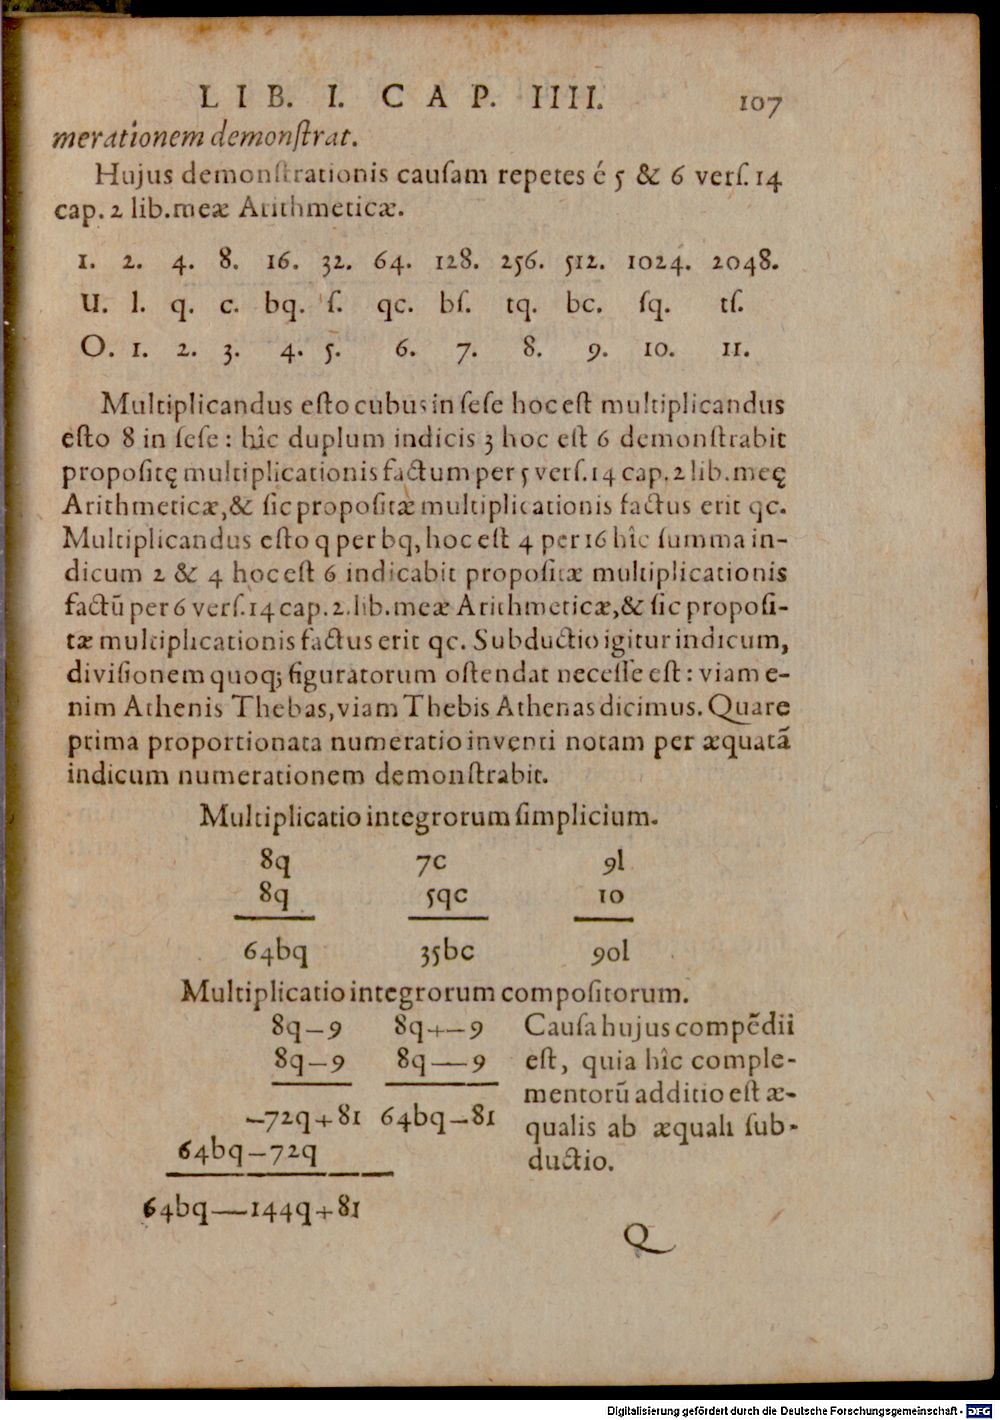 LIB. I. CAP. IIII. 107
merationem demonſtrat.
Hujus demonſtrationis cauſam repetes é 5 & 6 verſ. 14
cap. 2 lib. meæ Arithmeticæ.
1. 2. 4. 8. 16. 32. 64. 128. 256. 512. 1024. 2048.
U. l. q. c. bq. ſ. qc. bſ. tq. bc. ſq. tſ.
O. 1. 2. 3. 4. 5. 6. 7. 8. 9. 10. 11.
Multiplicandus eſto cubus in ſeſe hoc eſt multiplicandus
eſto 8 in ſeſe : hîc duplum indicis 3 hoc eſt 6 demonſtrabit
propoſitę multiplicationis factum per 5 verſ. 14 cap. 2 lib. meę
Arithmeticæ, & ſic propoſitæ multiplicationis factus erit qc.
Multiplicandus eſto q per bq, hoc eſt 4 per 16 hîc ſumma in-
dicum 2 & 4 hoc eſt 6 indicabit propoſitæ multiplicationis
factū per 6 verſ. 14 cap. 2. lib. meæ Arithmeticæ, & ſic propoſi-
tæ multiplicationis factus erit qc. Subductio igitur indicum,
diviſionem quoq; figuratorum oſtendat neceſſe eſt : viam e-
nim Athenis Thebas, viam Thebis Athenas dicimus. Quare
prima proportionata numeratio inventi notam per æquatā
indicum numerationem demonſtrabit.
Multiplicatio integrorum ſimplicium.
8q 7c 9l
8q 5qc 10
64bq 35bc 90l
Multiplicatio integrorum compoſitorum.
8q–9 8q+–9 Cauſa hujus compēdii
8q–9 8q—9 eſt, quia hîc comple-
mentorū additio eſt æ-
–72q+81 64bq–81 qualis ab æquali ſub-
64bq–72q ductio.
64bq—144q+81
Q
Digitalisierung gefördert durch die Deutsche Forschungsgemeinschaft - DFG